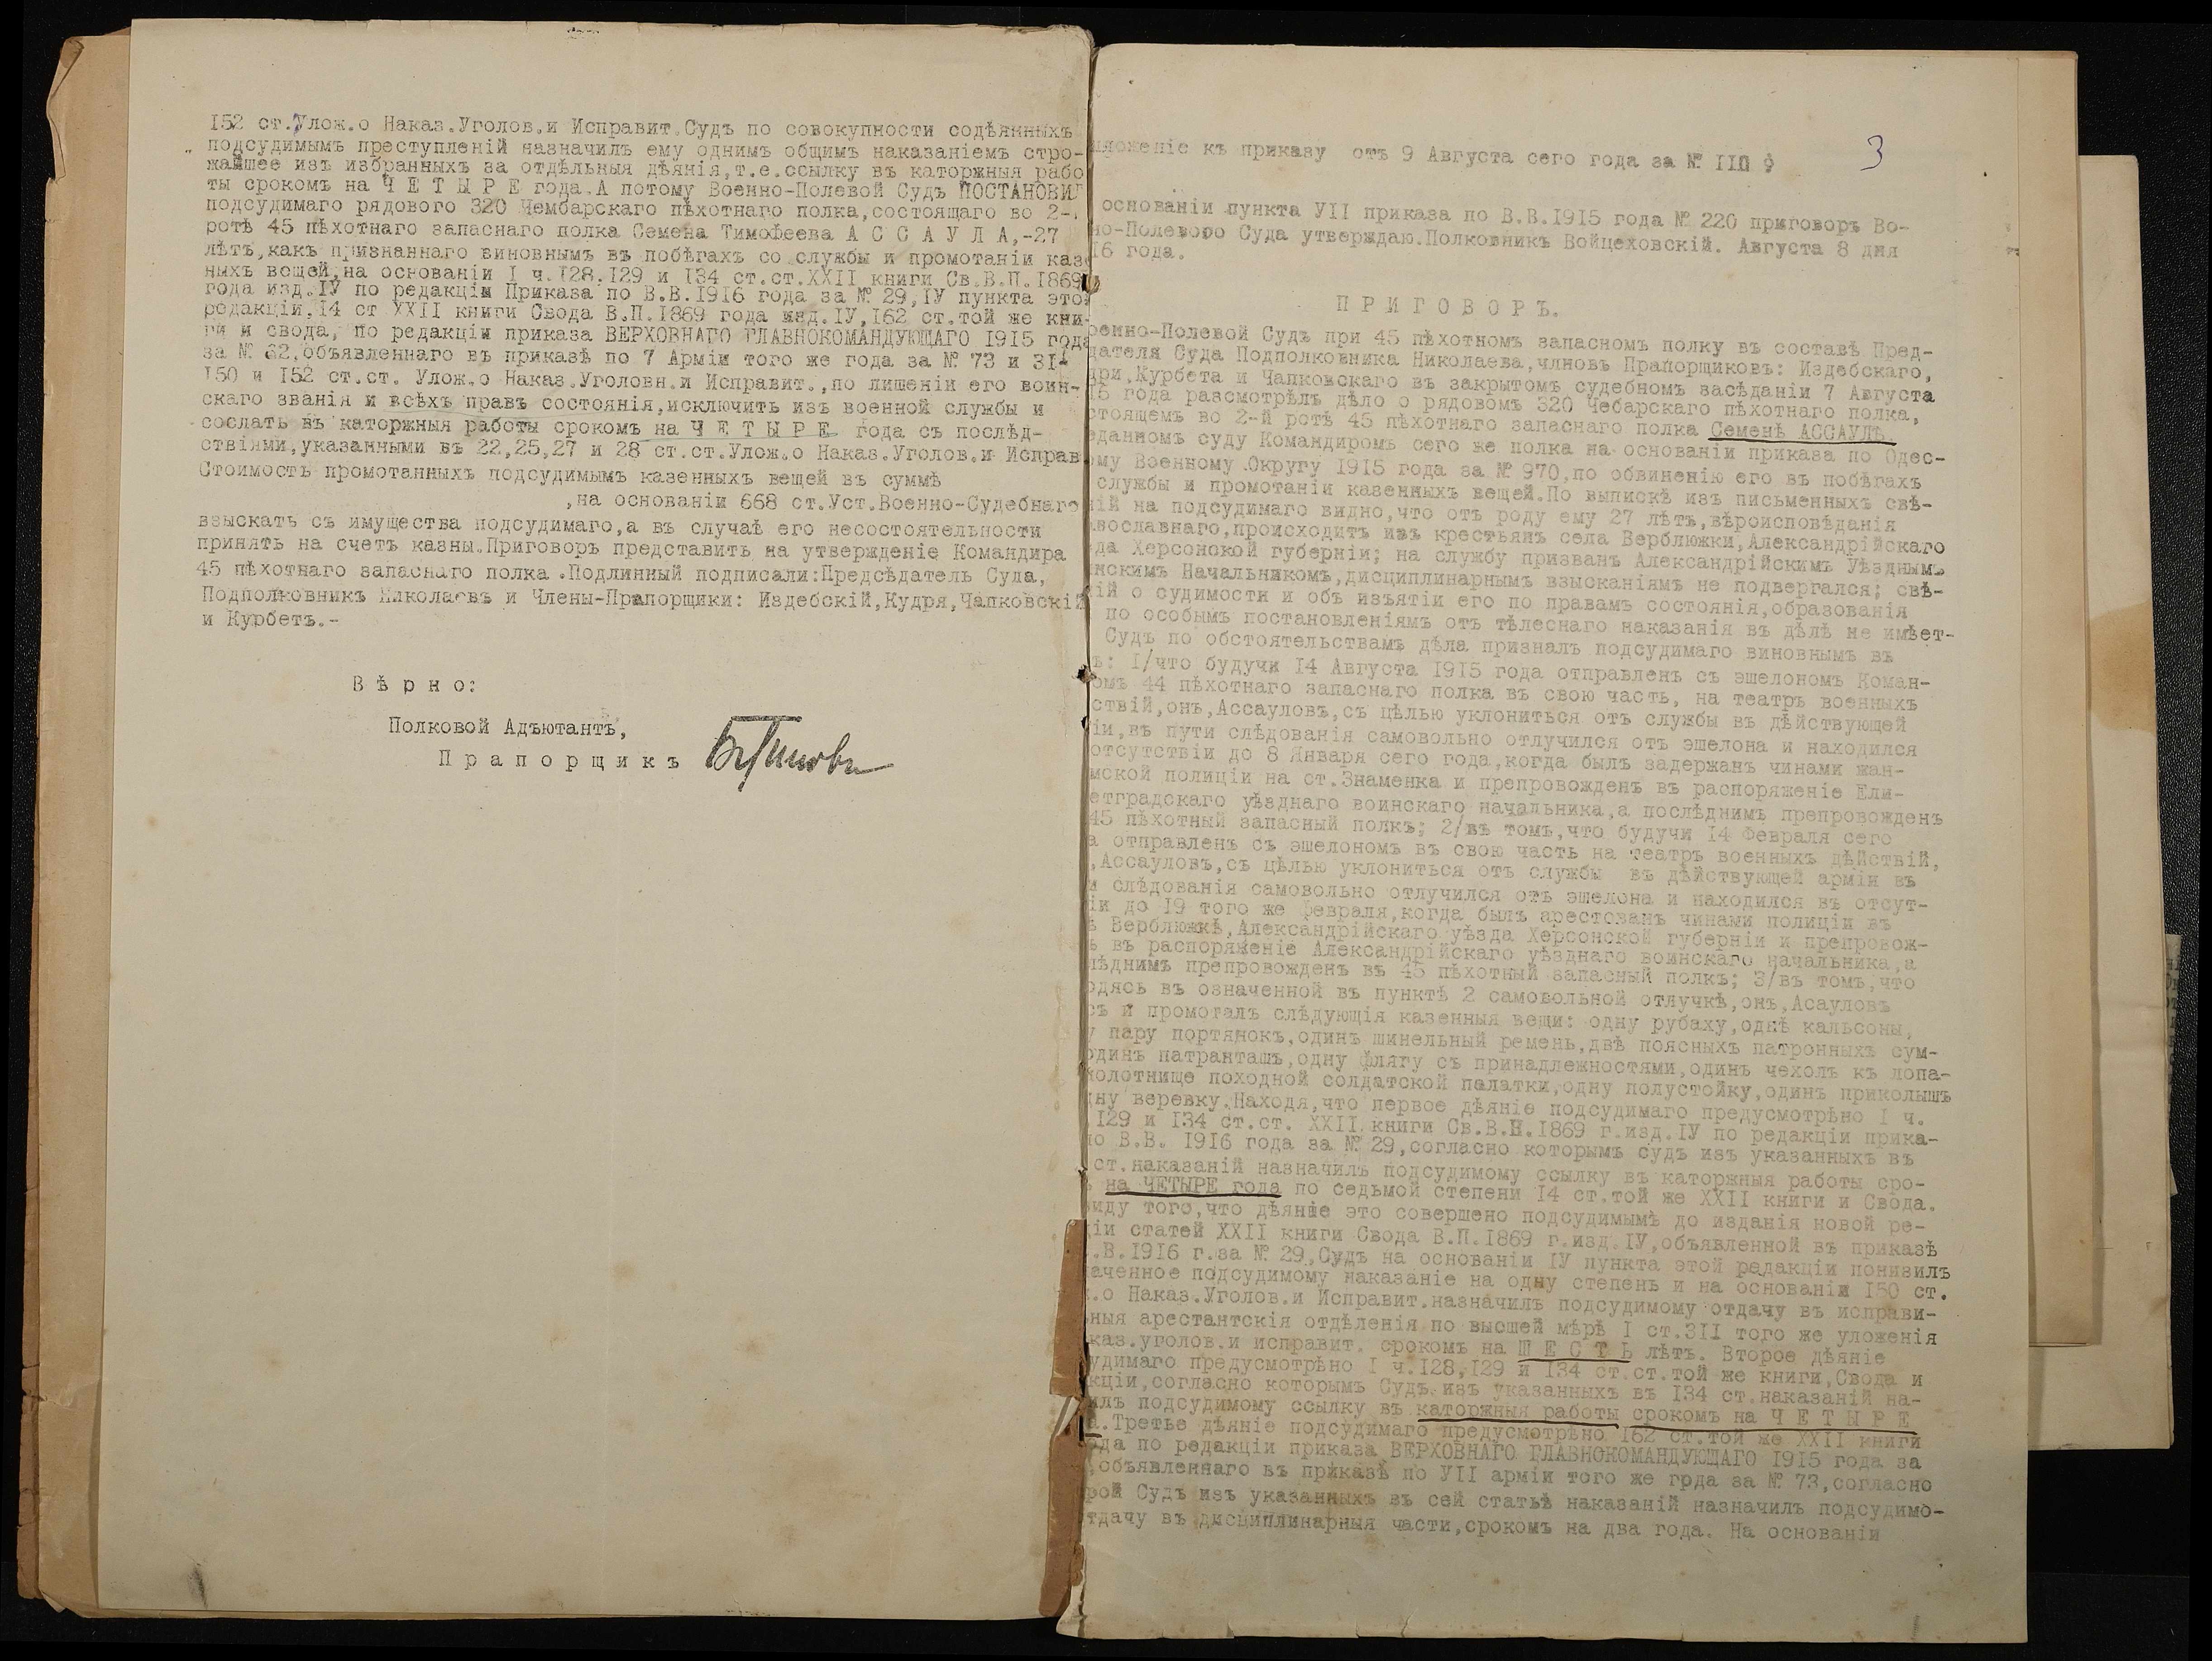 152 ст.Улож.о Наказ.Уголов.и Исправит.Судъ по совокупности содѣянныхъ
подсудимымъ преступленій назначилъ ему однимъ общимъ наказаніемъ стро-
жайшее изъ избранныхъ за отдѣльныя дѣянія,т.е.ссылку въ каторжныя рабо
ты срокомъ на Ч Е Т Ы Р Е года.А потому Военно-Полевой Судъ ПОСТАНОВИЛ
подсудимаго рядового 320 Чембарскаго пѣхотнаго полка,состоящаго во 2-
ротѣ 45 пѣхотнаго запаснаго полка Семена Тимофеева А С С А У Л А,-27
лѣтъ,какъ признаннаго виновнымъ въ побѣгахъ со службы и промотаніи каз
ныхъ вещей,на основаніи I ч.128,129 и 134 ст.ст.XXII книги Св.В.П.1869
года изд.IУ по редакціи Приказа по В.В.1916 года за № 29,IУ пункта это
редакціи,14 ст XXII книги Свода В.П.1869 года изд.IУ,162 ст.той же кни-
ги и свода, по редакціи приказа ВЕРХОВНАГО ГЛАВНОКОМАНДУЮЩАГО 1915 года
за № 62,объявленнаго въ приказѣ по 7 Арміи того же года за № 73 и 31
150 и 152 ст.ст. Улож.о Наказ.Уголовн.и Исправит.,по лишеніи его воин-
скаго званія и всѣхъ правъ состоянія,исключить изъ военной службы и
сослать въ каторжныя работы срокомъ на Ч Е Т Ы Р Е года съ послѣд-
ствіями,указанными въ 22,25,27 и 28 ст.ст.Улож.о Наказ.Уголов.и Исправ
Стоимость промотанныхъ подсудимымъ казенныхъ вещей въ суммѣ
,на основаніи 668 ст.Уст.Военно-Судебнаго
взыскать съ имущества подсудимаго,а въ случаѣ его несостоятельности
принять на счетъ казны.Приговоръ представить на утвержденіе Командира
45 пѣхотнаго запаснаго полка.Подлинный подписали:Предсѣдатель Суда,
Подполковникъ Николаевъ и Члены-Прапорщики: Издебскій,Кудря,Чапковскій
и Курбетъ.-
В ѣ р н о:
Полковой Адъютантъ,
П р а п о р щ и к ъ
3
ложеніе къ приказу отъ 9 Августа сего года за №
основаніи пункта УII приказа по В.В.1915 года № 220 приговоръ Во-
но-Полевого Суда утверждаю.Полковникъ Войцеховскій. Августа 8 дня
16 года.
П Р И Г О В О Р Ъ.
оенно-Полевой Судъ при 45 пѣхотномъ запасномъ полку въ составѣ Пред-
дателя Суда Подполковника Николаева,члновъ Прапорщиковъ: Издебскаго,
дри,Курбета и Чапковскаго въ закрытомъ судебномъ засѣданіи 7 Августа
15 года разсмотрѣлъ дѣло о рядовомъ 320 Чебарскаго пѣхотнаго полка,
стоящемъ во 2-й ротѣ 45 пѣхотнаго запаснаго полка Семенѣ АССАУЛѢ,
еданномъ суду Командиромъ сего же полка на основаніи приказа по Одес-
ому Военному Округу 1915 года за № 970,по обвиненію его въ побѣгахъ
службы и промотаніи казенныхъ вещей.По выпискѣ изъ письменныхъ свѣ-
ній на подсудимаго видно,что отъ роду ему 27 лѣтъ,вѣроисповѣданія
авославнаго,происходитъ изъ крестьянъ села Верблюжки,Александрійскаго
да Херсонской губерніи; на службу призванъ Александрійскимъ Уѣзднымъ
нскимъ Начальникомъ,дисциплинарнымъ взысканіямъ не подвергался; свѣ-
ній о судимости и объ изъятіи его по правамъ состоянія,образованія
по особымъ постановленіямъ отъ тѣлеснаго наказанія въ дѣлѣ не имѣет-
Судъ по обстоятельствамъ дѣла призналъ подсудимаго виновнымъ въ
ъ: I/что будучи 14 Августа 1915 года отправленъ съ эшелономъ Коман-
омъ 44 пѣхотнаго запаснаго полка въ свою часть, на театръ военныхъ
ствій,онъ,Ассауловъ,съ цѣлью уклониться отъ службы въ дѣйствующей
іи,въ пути слѣдованія самовольно отлучился отъ эшелона и находился
отсутствіи до 8 Января сего года,когда былъ задержанъ чинами жан-
мской полиціи на ст.Знаменка и препровожденъ въ распоряженіе Ели-
етградскаго уѣзднаго воинскаго начальника,а послѣднимъ препровожденъ
45 пѣхотный запасный полкъ; 2/въ томъ,что будучи 14 Февраля сего
а отправленъ съ эшелономъ въ свою часть на театръ военныхъ дѣйствій,
,Ассауловъ,съ цѣлью уклониться отъ службы въ дѣйствующей арміи въ
и слѣдованія самовольно отлучился отъ эшелона и находился въ отсут-
іи до 19 того же февраля,когда былъ арестованъ чинами полиціи въ
ѣ Верблюжкѣ,Александрійскаго уѣзда Херсонской губерніи и препровож-
ъ въ распоряженіе Александрійскаго уѣзднаго воинскаго начальника,а
лѣднимъ препровожденъ въ 45 пѣхотный запасный полкъ; 3/въ томъ,что
одясь въ означенной въ пунктѣ 2 самовольной отлучкѣ,онъ,Асауловъ
съ и промоталъ слѣдующія казенныя вещи: одну рубаху,однѣ кальсоны,
у пару портянокъ,одинъ шинельный ремень,двѣ поясныхъ патронныхъ сум-
одинъ патранташъ,одну флягу съ принадлежностями,одинъ чехолъ къ лопа-
полотнище походной солдатской палатки,одну полустойку,одинъ приколышъ
дну веревку.Находя,что первое дѣяніе подсудимаго предусмотрѣно I ч.
129 и 134 ст.ст. XXII книги Св.В.П.1869 г.изд.IУ по редакціи прика-
по В.В. 1916 года за № 29,согласно которымъ судъ изъ указанныхъ въ
ст.наказаній назначилъ подсудимому ссылку въ каторжныя работы сро-
ъ на ЧЕТЫРЕ года по седьмой степени 14 ст.той же XXII книги и Свода.
виду того,что дѣяніе это совершено подсудимымъ до изданія новой ре-
ціи статей XXII книги Свода В.П.1869 г.изд.IУ,объявленной въ приказѣ
.В.1916 г.за № 29,Судъ на основаніи IУ пункта этой редакціи понизилъ
наченное подсудимому наказаніе на одну степень и на основаніи 150 ст.
.о Наказ.Уголов.и Исправит.назначилъ подсудимому отдачу въ исправи-
ныя арестантскія отдѣленія по высшей мѣрѣ I ст.311 того же уложенія
каз.уголов.и исправит. срокомъ на Ш Е С Т Ь лѣтъ. Второе дѣяніе
удимаго предусмотрѣно I ч.128,129 и 134 ст.ст.той же книги,Свода и
кціи,согласно которымъ Судъ изъ указанныхъ въ 134 ст.наказаній на-
илъ подсудимому ссылку въ каторжныя работы срокомъ на Ч Е Т Ы Р Е
а.Третье дѣяніе подсудимаго предусмотрѣно 162 ст.той же XXII книги
ода по редакціи приказа ВЕРХОВНАГО ГЛАВНОКОМАНДУЮЩАГО 1915 года за
,объявленнаго въ приказѣ по УII арміи того же грда за № 73,согласно
рой Судъ изъ указанныхъ въ сей статьѣ наказаній назначилъ подсудимо-
тдачу въ дисциплинарныя части,срокомъ на два года. На основаніи